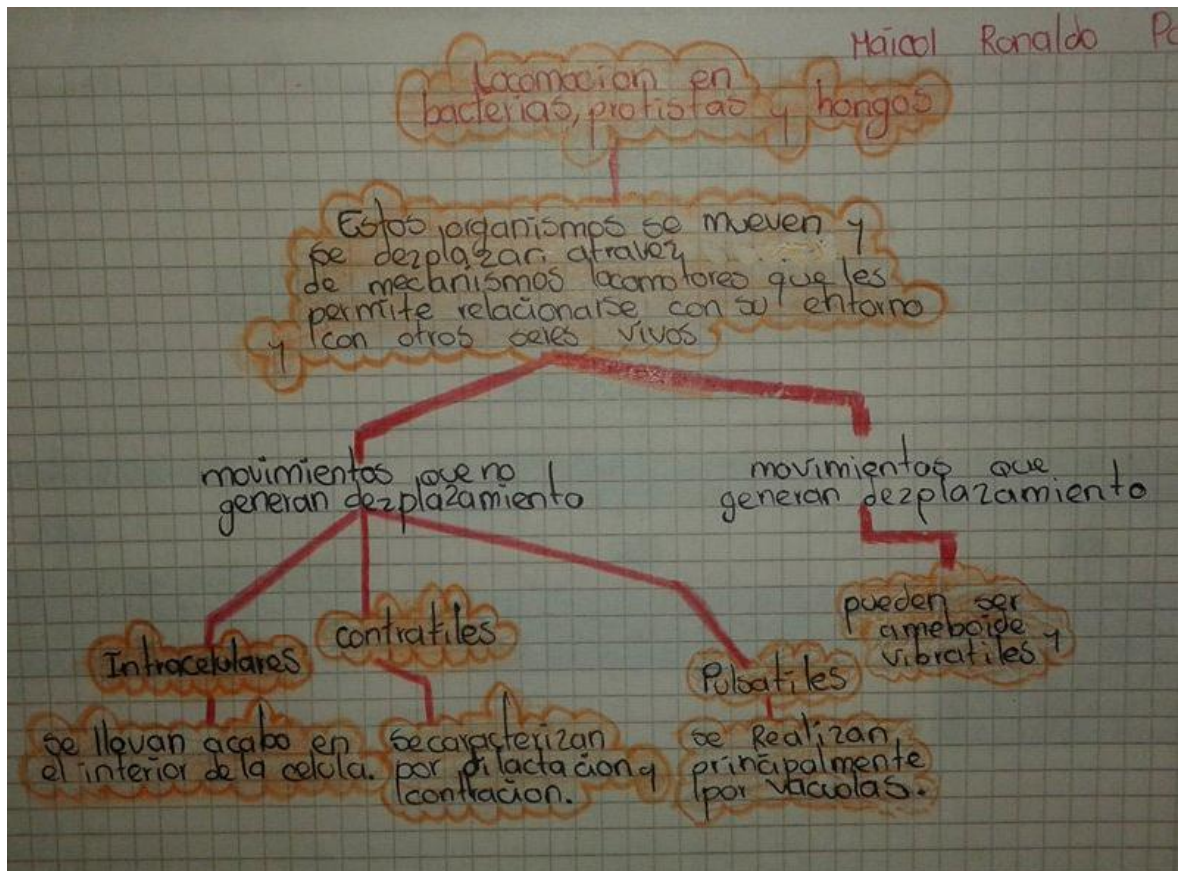 Maicol Ronaldo
Locomocion en
bacterias, protistas y hongos
Estos organismos se mueven y
se dezplazan atravez
de mecanismos locomotores que les
permite relacionarse con su entorno
y con otros seres vivos
movimientos que no
generan dezplazamiento
movimientos que
generan dezplazamiento
Intracelulares
contratiles
Pulsatiles
pueden ser
ameboide y
vibratiles
se llevan acabo en
el interior de la celula.
secaracterizan
por dilactación y
contracion.
se Realizan
principalmente
por vacuolas.